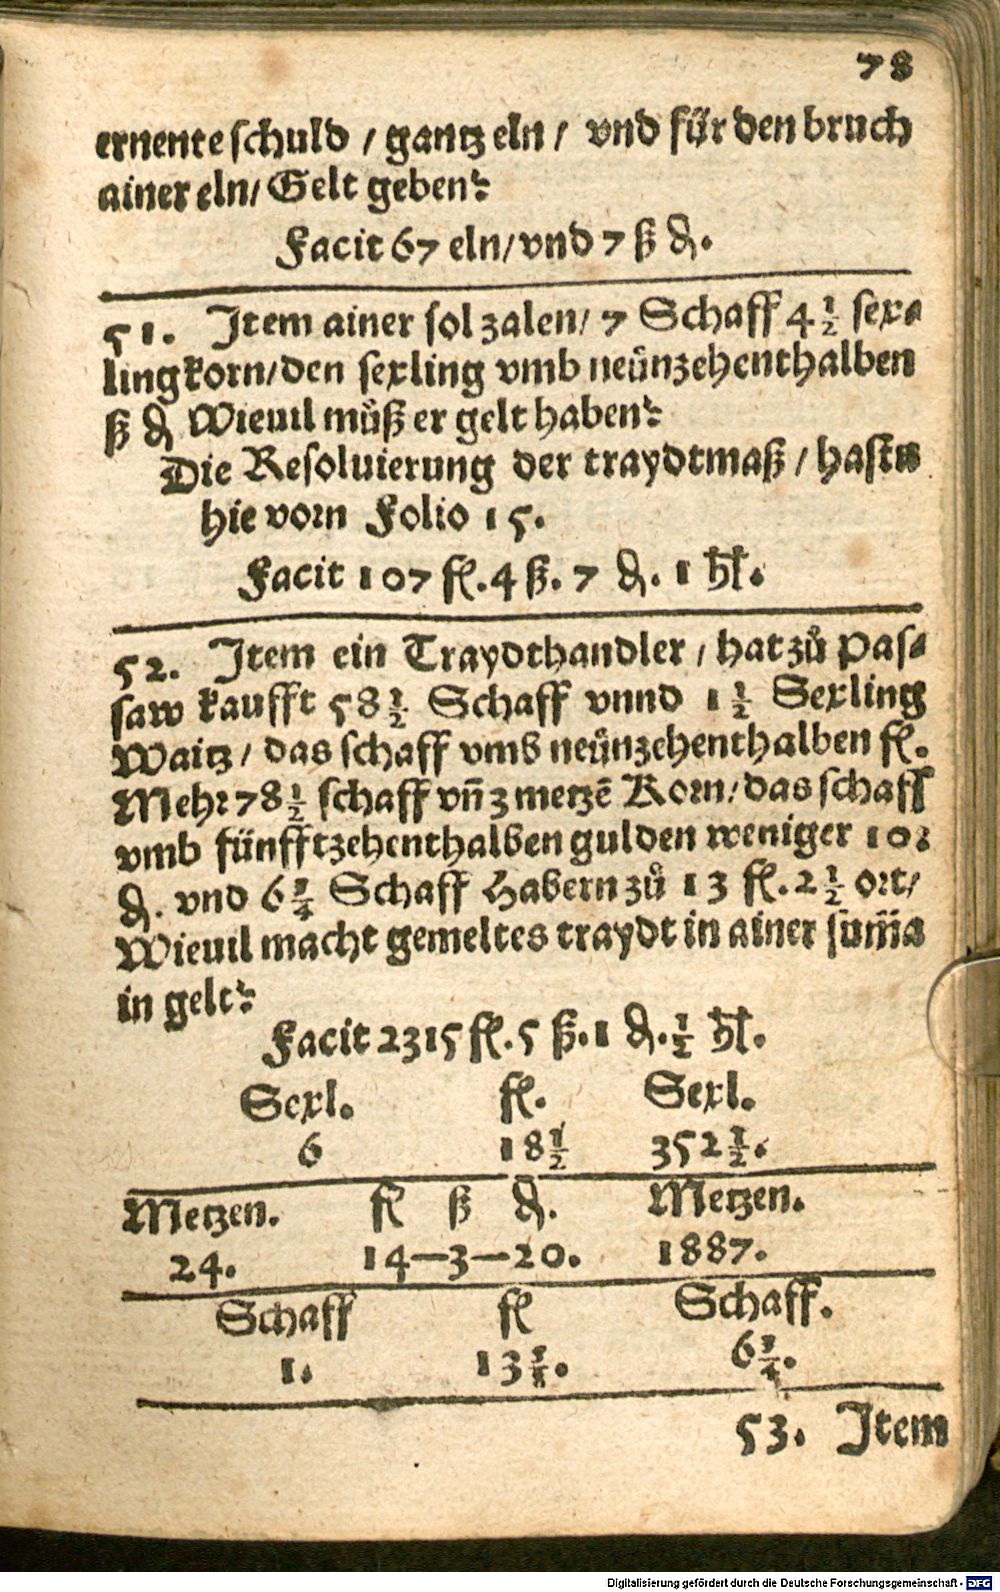 78
ernente schuld / gantz eln / vnd für den bruch
ainer eln / Gelt geben?
Facit 67 eln / vnd 7 ß ₰.
51. Item ainer sol zalen / 7 Schaff 4 1/2 sex⸗
ling korn / den sexling vmb neünzehenthalben
ß ₰ Wieuil müß er gelt haben?
Die Resoluierung der traydtmaß / hastu
hie vorn Folio 15.
Facit 107 fl. 4 ß. 7 ₰. 1 hl.
52. Item ein Traydthandler / hat zů Pas⸗
saw kaufft 58 1/2 Schaff vnnd 1 1/2 Sexling
Waitz / das schaff vmb neünzehenthalben fl.
Mehr 78 1/2 schaff vn̄ 3 metzē Korn / das schaff
vmb fünfftzehenthalben gulden weniger 10
₰. vnd 6 3/4 Schaff Habern zů 13 fl. 2 1/2 ort /
Wieuil macht gemeltes traydt in ainer sum̄a
in gelt?
Facit 2315 fl. 5 ß. 1 ₰. 1/2 hl.
Sexl. fl. Sexl.
6 18 1/2 352 1/2.
Metzen. fl ß ₰. Metzen.
24. 14—3—20. 1887.
Schaff fl Schaff.
1. 13 5/8. 6 3/4.
53. Item
Digitalisierung gefördert durch die Deutsche Forschungsgemeinschaft - DFG